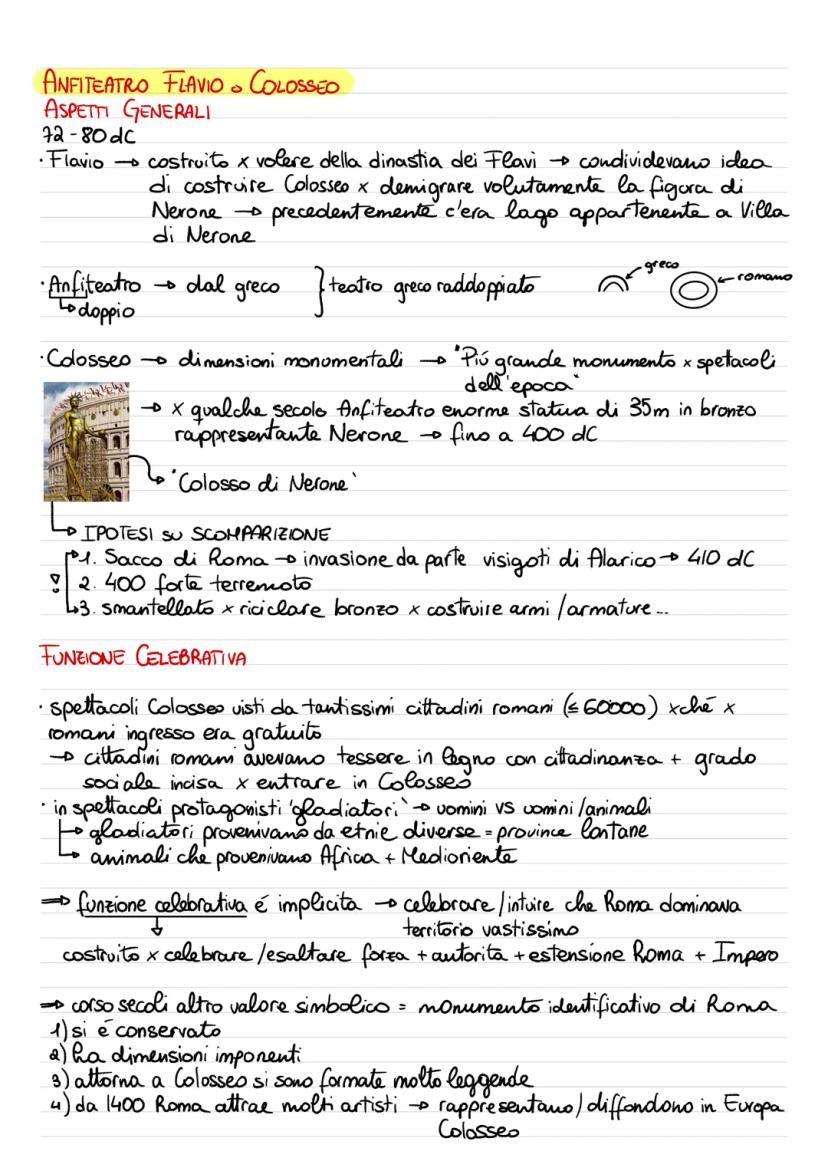 ANFITEATRO FLAVIO o COLOSSEO
ASPETTI GENERALI
72-80 dC
· Flavio → costruito x volere della dinastia dei Flavi → condividevano idea
di costruire Colosseo x demigrare volutamente la figura di
Nerone → precedentemente c'era lago appartenente a Villa
di Nerone
greco
romano
· Anfiteatro → dal greco } teatro greco raddoppiato
↳ doppio
· Colosseo → dimensioni monumentali → "Piú grande monumento x spetacoli
dell'epoca"
→ x qualche secolo Anfiteatro enorme statua di 35m in bronzo
rappresentante Nerone → fino a 400 dC
↳ 'Colosso di Nerone'
↳ IPOTESI SU SCOMPARIZIONE
1. Sacco di Roma → invasione da parte visigoti di Alarico → 410 dC
! 2. 400 forte terremoto
3. smantellato x riciclare bronzo x costruire armi/armature...
FUNZIONE CELEBRATIVA
· spettacoli Colosseo visti da tantissimi cittadini romani (≤ 60'000) xché x
romani ingresso era gratuito
→ cittadini romani avevano tessere in legno con cittadinanza + grado
sociale incisa x entrare in Colosseo
· in spettacoli protagonisti 'gladiatori' → uomini vs uomini/animali
↳ gladiatori provenivano da etnie diverse = province lontane
↳ animali che provenivano Africa + Medioriente
⇒ funzione celebrativa é implicita → celebrare/intuire che Roma dominava
territorio vastissimo
costruito x celebrare/esaltare forza + autorità + estensione Roma + Impero
⇒ corso secoli altro valore simbolico = monumento identificativo di Roma
1) si é conservato
2) ha dimensioni imponenti
3) attorna a Colosseo si sono formate molto leggende
4) da 1400 Roma attrae molti artisti → rappresentano/diffondono in Europa
Colosseo